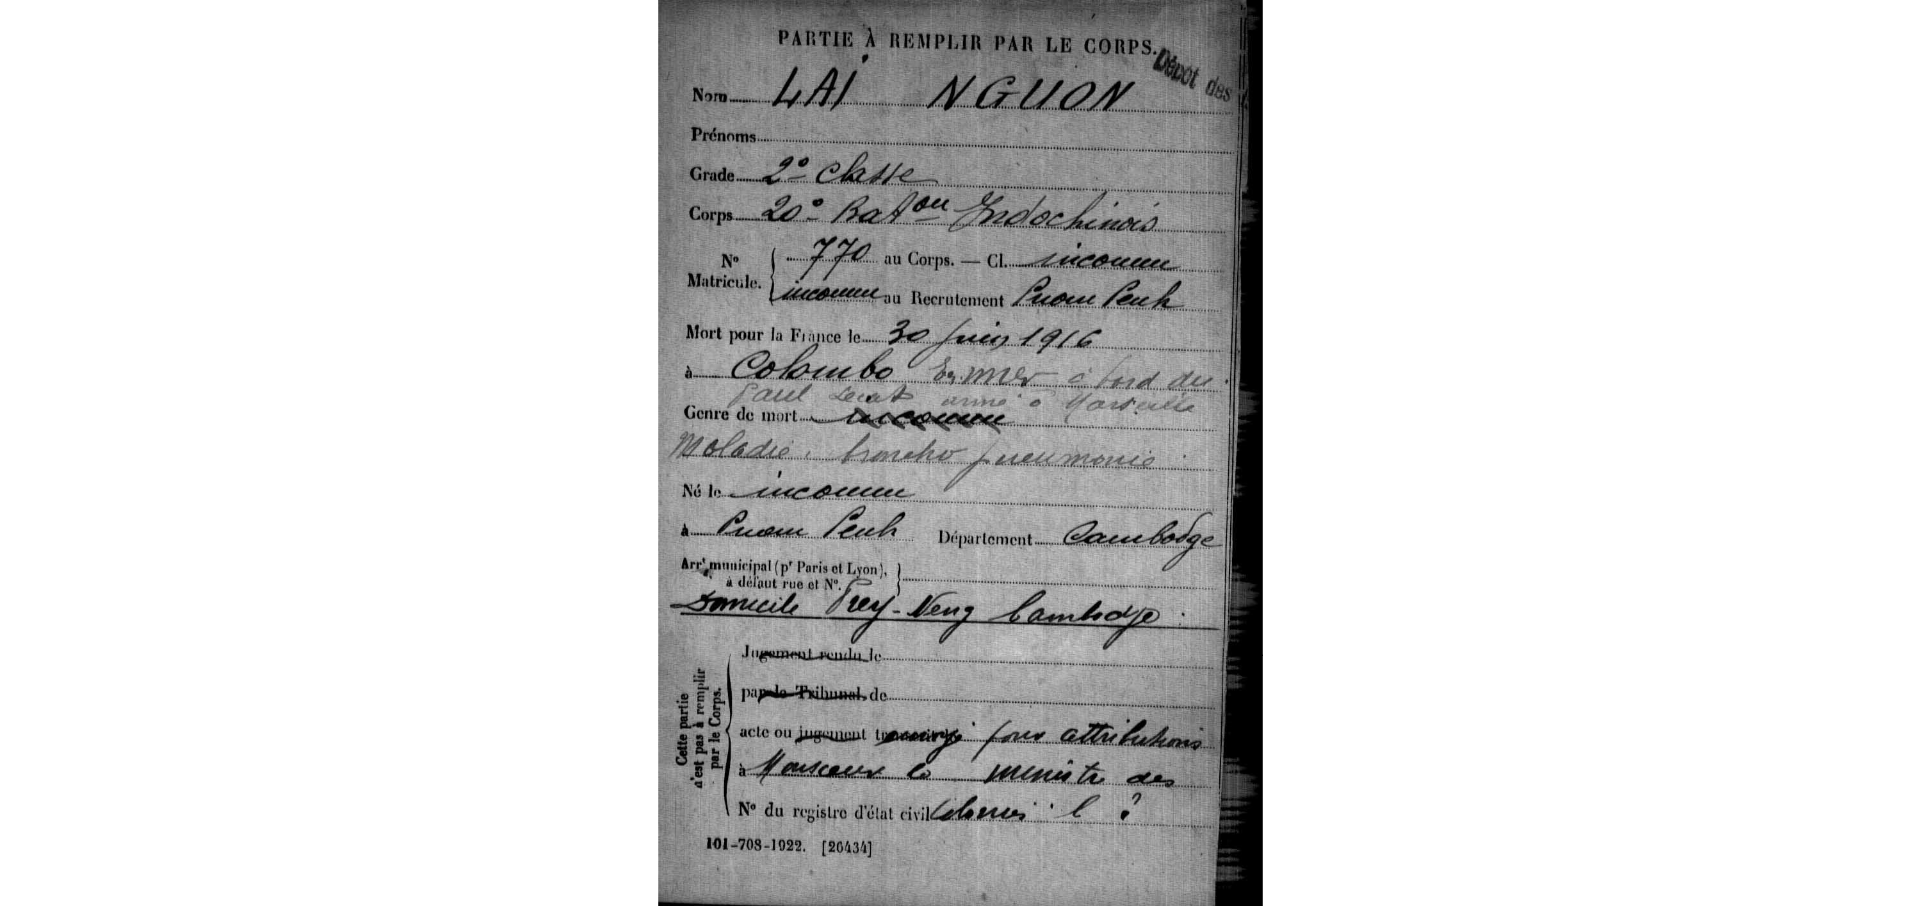 PARTIE À REMPLIR PAR LE CORPS.
Dépôt des
Nom LAI NGUON
Prénoms
Grade 2e Classe
Corps 20e Baton Indochinois
No Matricule. { 770 au Corps. — Cl. inconnu
inconnu au Recrutement Pnom Penh
Mort pour la France le 30 Juin 1916
à Colombo En mer à bord du
Paul Lecat armé à Marseille
Genre de mort inconnu
Maladie. broncho pneumonie
Né le inconnu
à Pnom Penh Département Cambodge
Arrt municipal (pr Paris et Lyon),
à défaut rue et No.
Domicile Prey-Veng Cambodge
Cette partie n'est pas à remplir par le Corps.
Jugement rendu le
par le Tribunal de
acte ou jugement pour attributions
à Monsieur le ministre des
No du registre d'état civil Colonies l ?
101-708-1922. [26434]